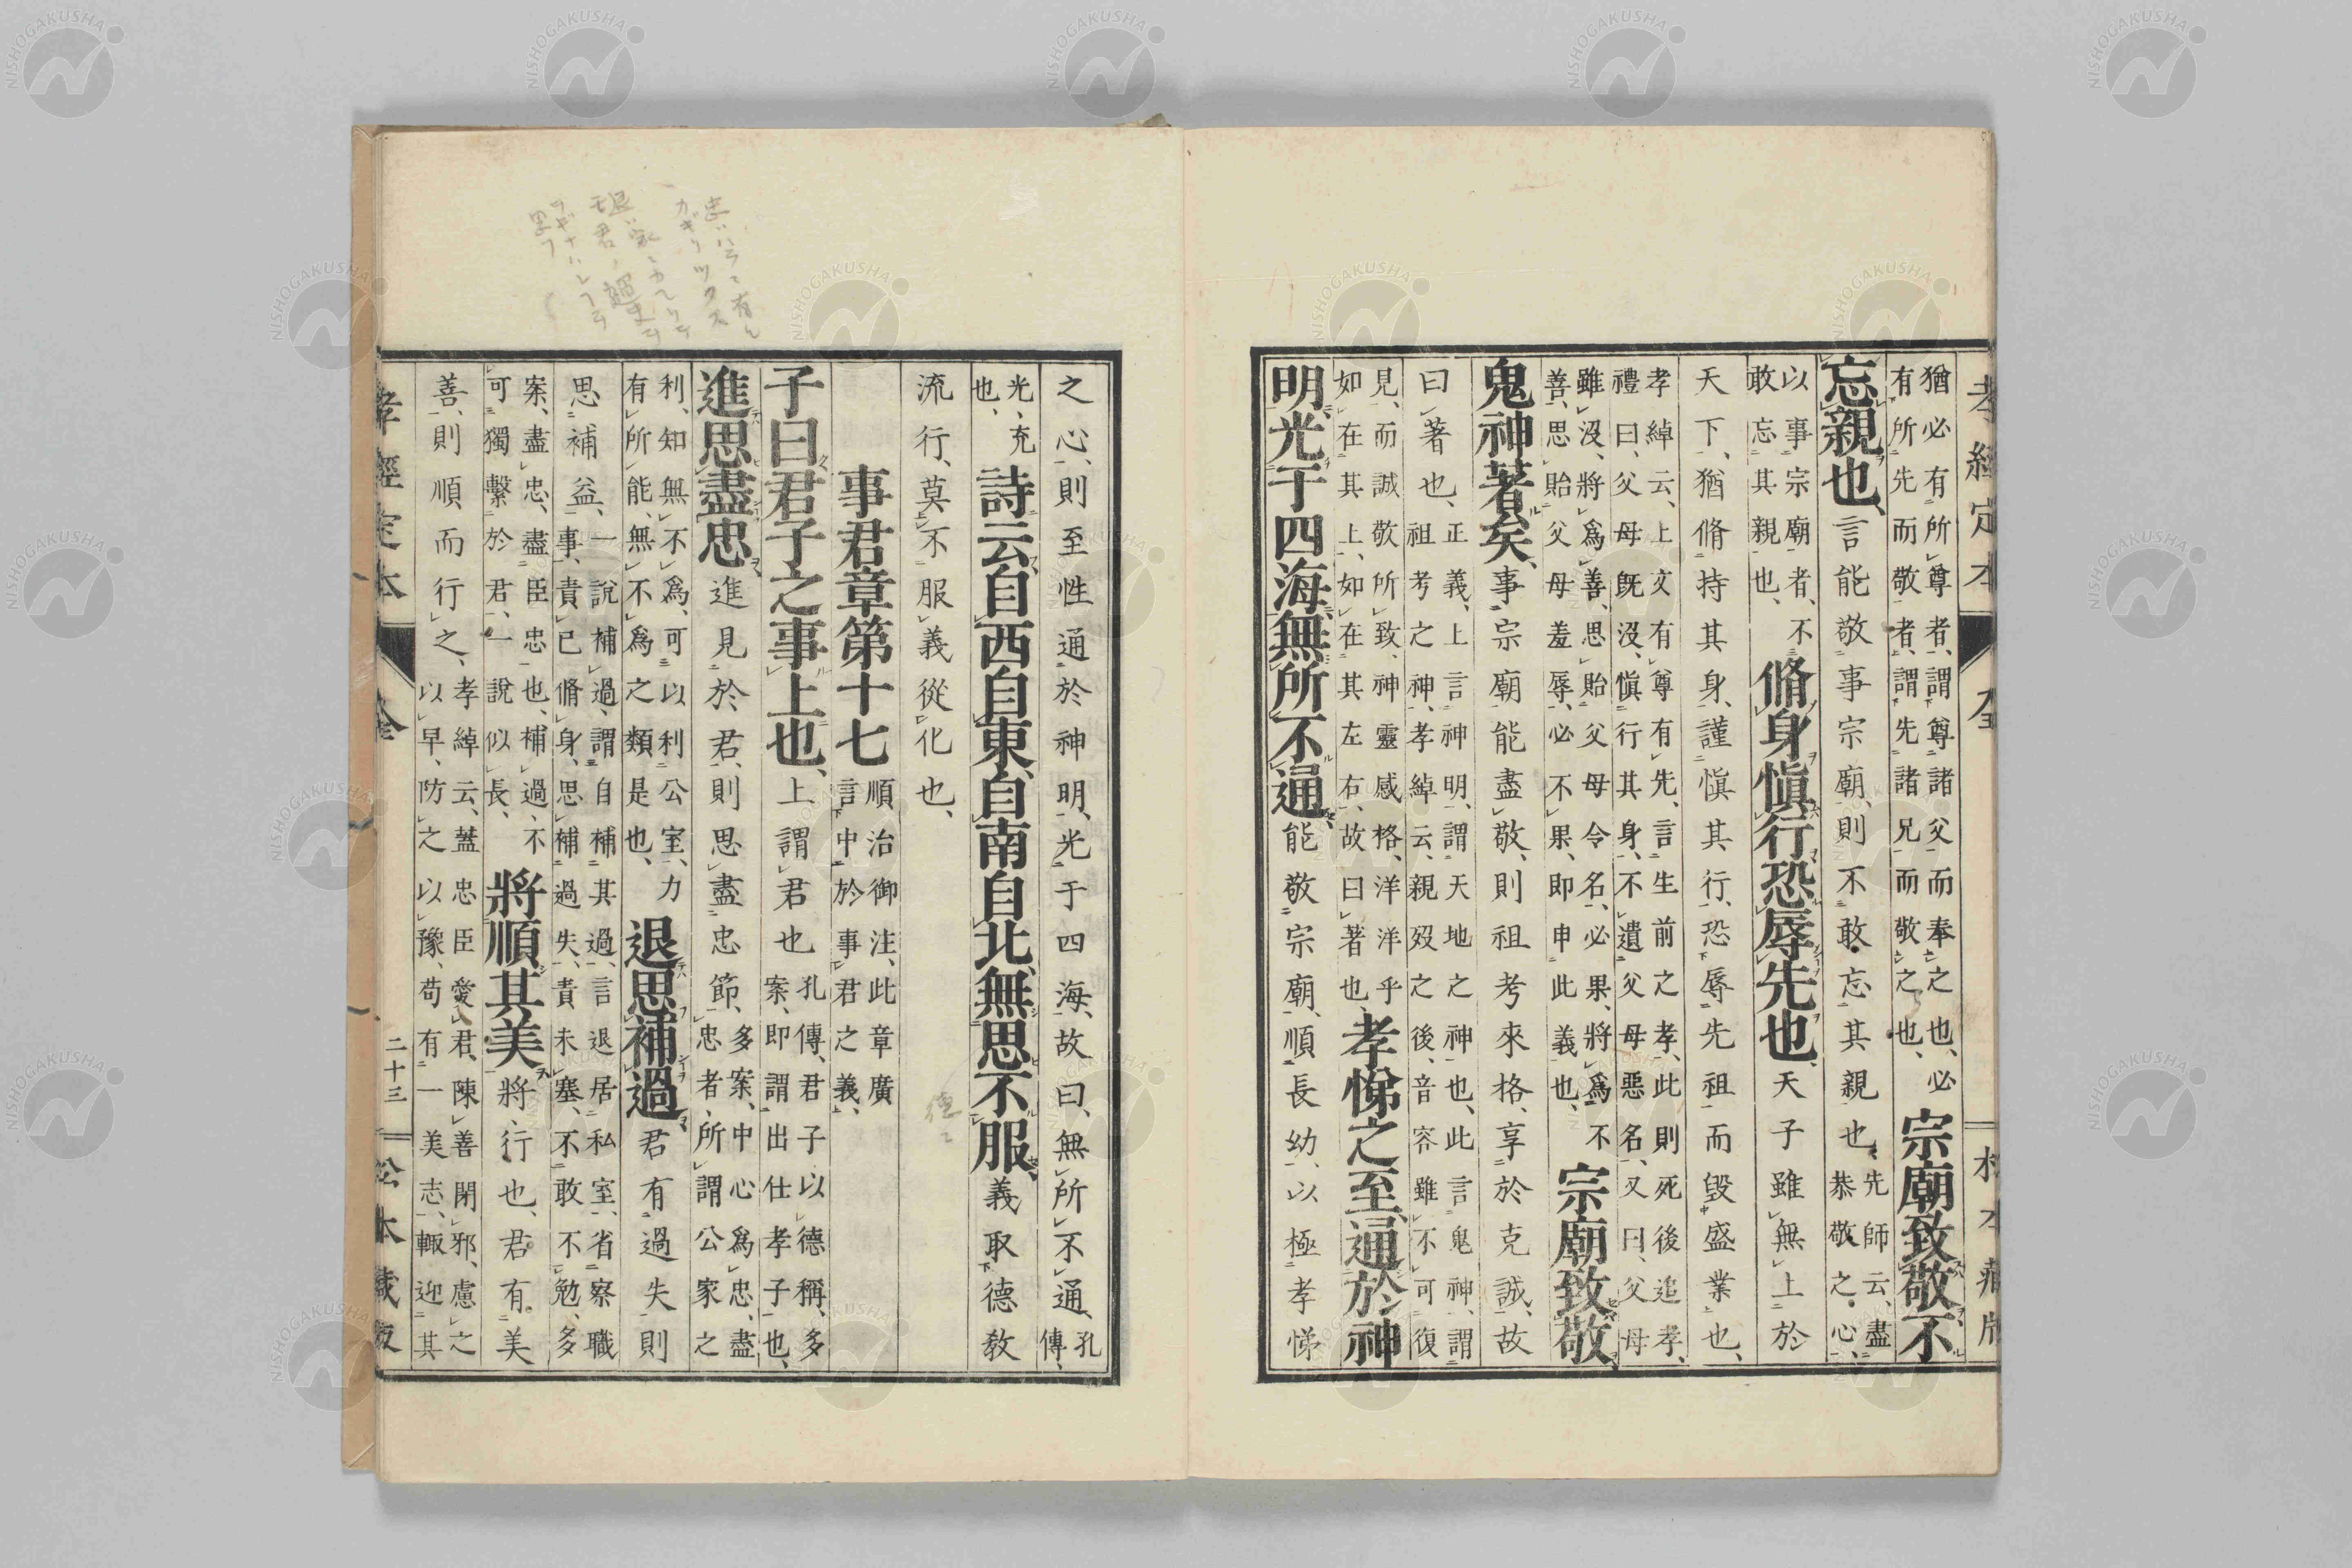 孝經定本　全　松本藏版
猶必有所尊者、謂尊諸父而奉之也、必
有所先而敬者、謂先諸兄而敬之也、
宗廟致敬不
忘親也、言能敬事宗廟、則不敢忘其親也、
先師云、盡
恭敬之心、
以事宗廟者、不
敢忘其親也、
脩身愼行恐辱先也、天子雖無上於
天下、猶脩持其身、謹愼其行、恐辱先祖而毀盛業也、
孝綽云、上文有尊有先、言生前之孝、此則死後追孝、
禮曰、父母旣沒、愼行其身、不遺父母惡名、又曰、父母
雖沒、將爲善、思貽父母令名、必果、將爲不
善、思貽父母羞辱、必不果、即申此義也、
宗廟致敬
鬼神著矣、事宗廟能盡敬、則祖考來格、享於克誠、故
曰著也、
正義、上言神明、謂天地之神也、此言鬼神、謂
祖考之神、孝綽云、親歿之後、音容雖不可復
見、而誠敬所致、神靈感格、洋洋乎
如在其上、如在其左右、故曰著也、
孝悌之至、通於神
明、光于四海、無所不通、能敬宗廟、順長幼、以極孝悌
之心、則至性通於神明、光于四海、故曰、無所不通、
孔
傳、
光、充
也、
詩云、自西自東、自南自北、無思不服、義取德教
流行、莫不服義從化也、
事君章第十七
順治御注、此章廣
言中於事君之義、
子曰君子之事上也、上謂君也
孔傳、君子以德稱、多
案、即謂出仕孝子也、
進思盡忠、進見於君、則思盡忠節、
多案、中心爲忠、盡
忠者、所謂公家之
利、知無不爲、可以利公室、力
有所能、無不爲之類是也、
退思補過、君有過失則
思補益、
一說補過、謂自補其過、言退居私室、省察職
事、責已脩身、思補過失、責未塞、不敢不勉、多
案、盡忠、盡臣忠也、補過、不
可獨繫於君、一說似長、
將順其美、將、行也、君有美
善、則順而行之、
孝綽云、蓋忠臣愛君、陳善閉邪、慮之
以早、防之以豫、苟有一美志、輙迎其
孝經定本　全　二十三　松本藏版